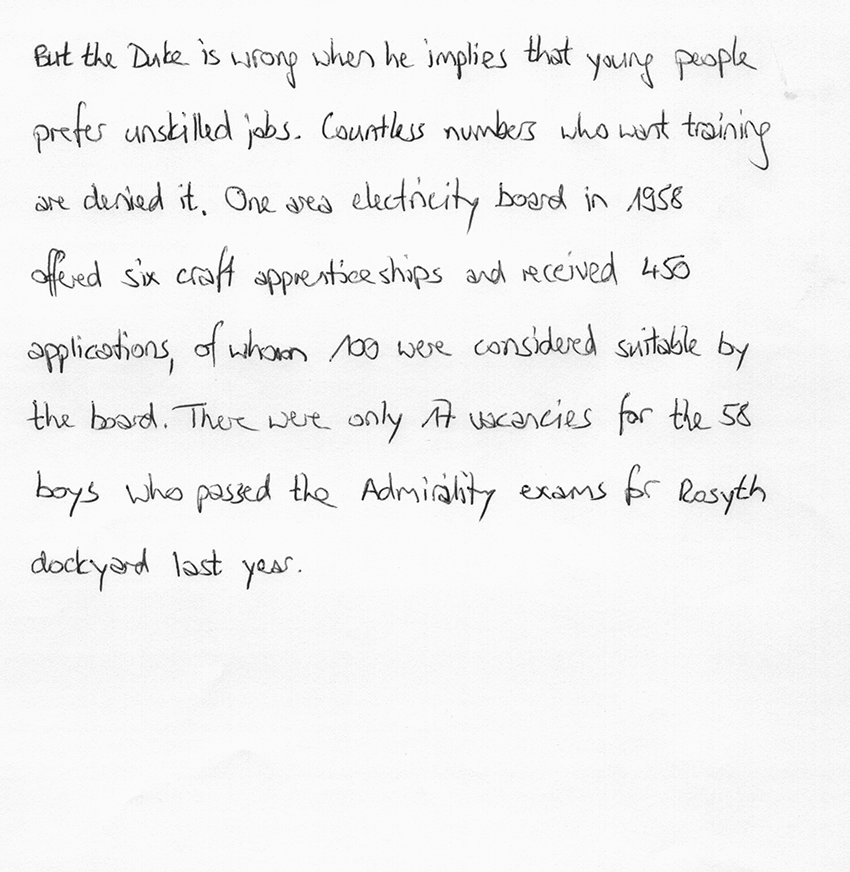 But the Duke is wrong when he implies that young people
prefer unskilled jobs. Countless numbers who want training
are denied it. One area electricity board in 1958
offered six craft apprenticeships and received 450
applications, of whom 100 were considered suitable by
the board. There were only 17 vacancies for the 58
boys who passed the Admirality exams for Rosyth
dockyard last year.